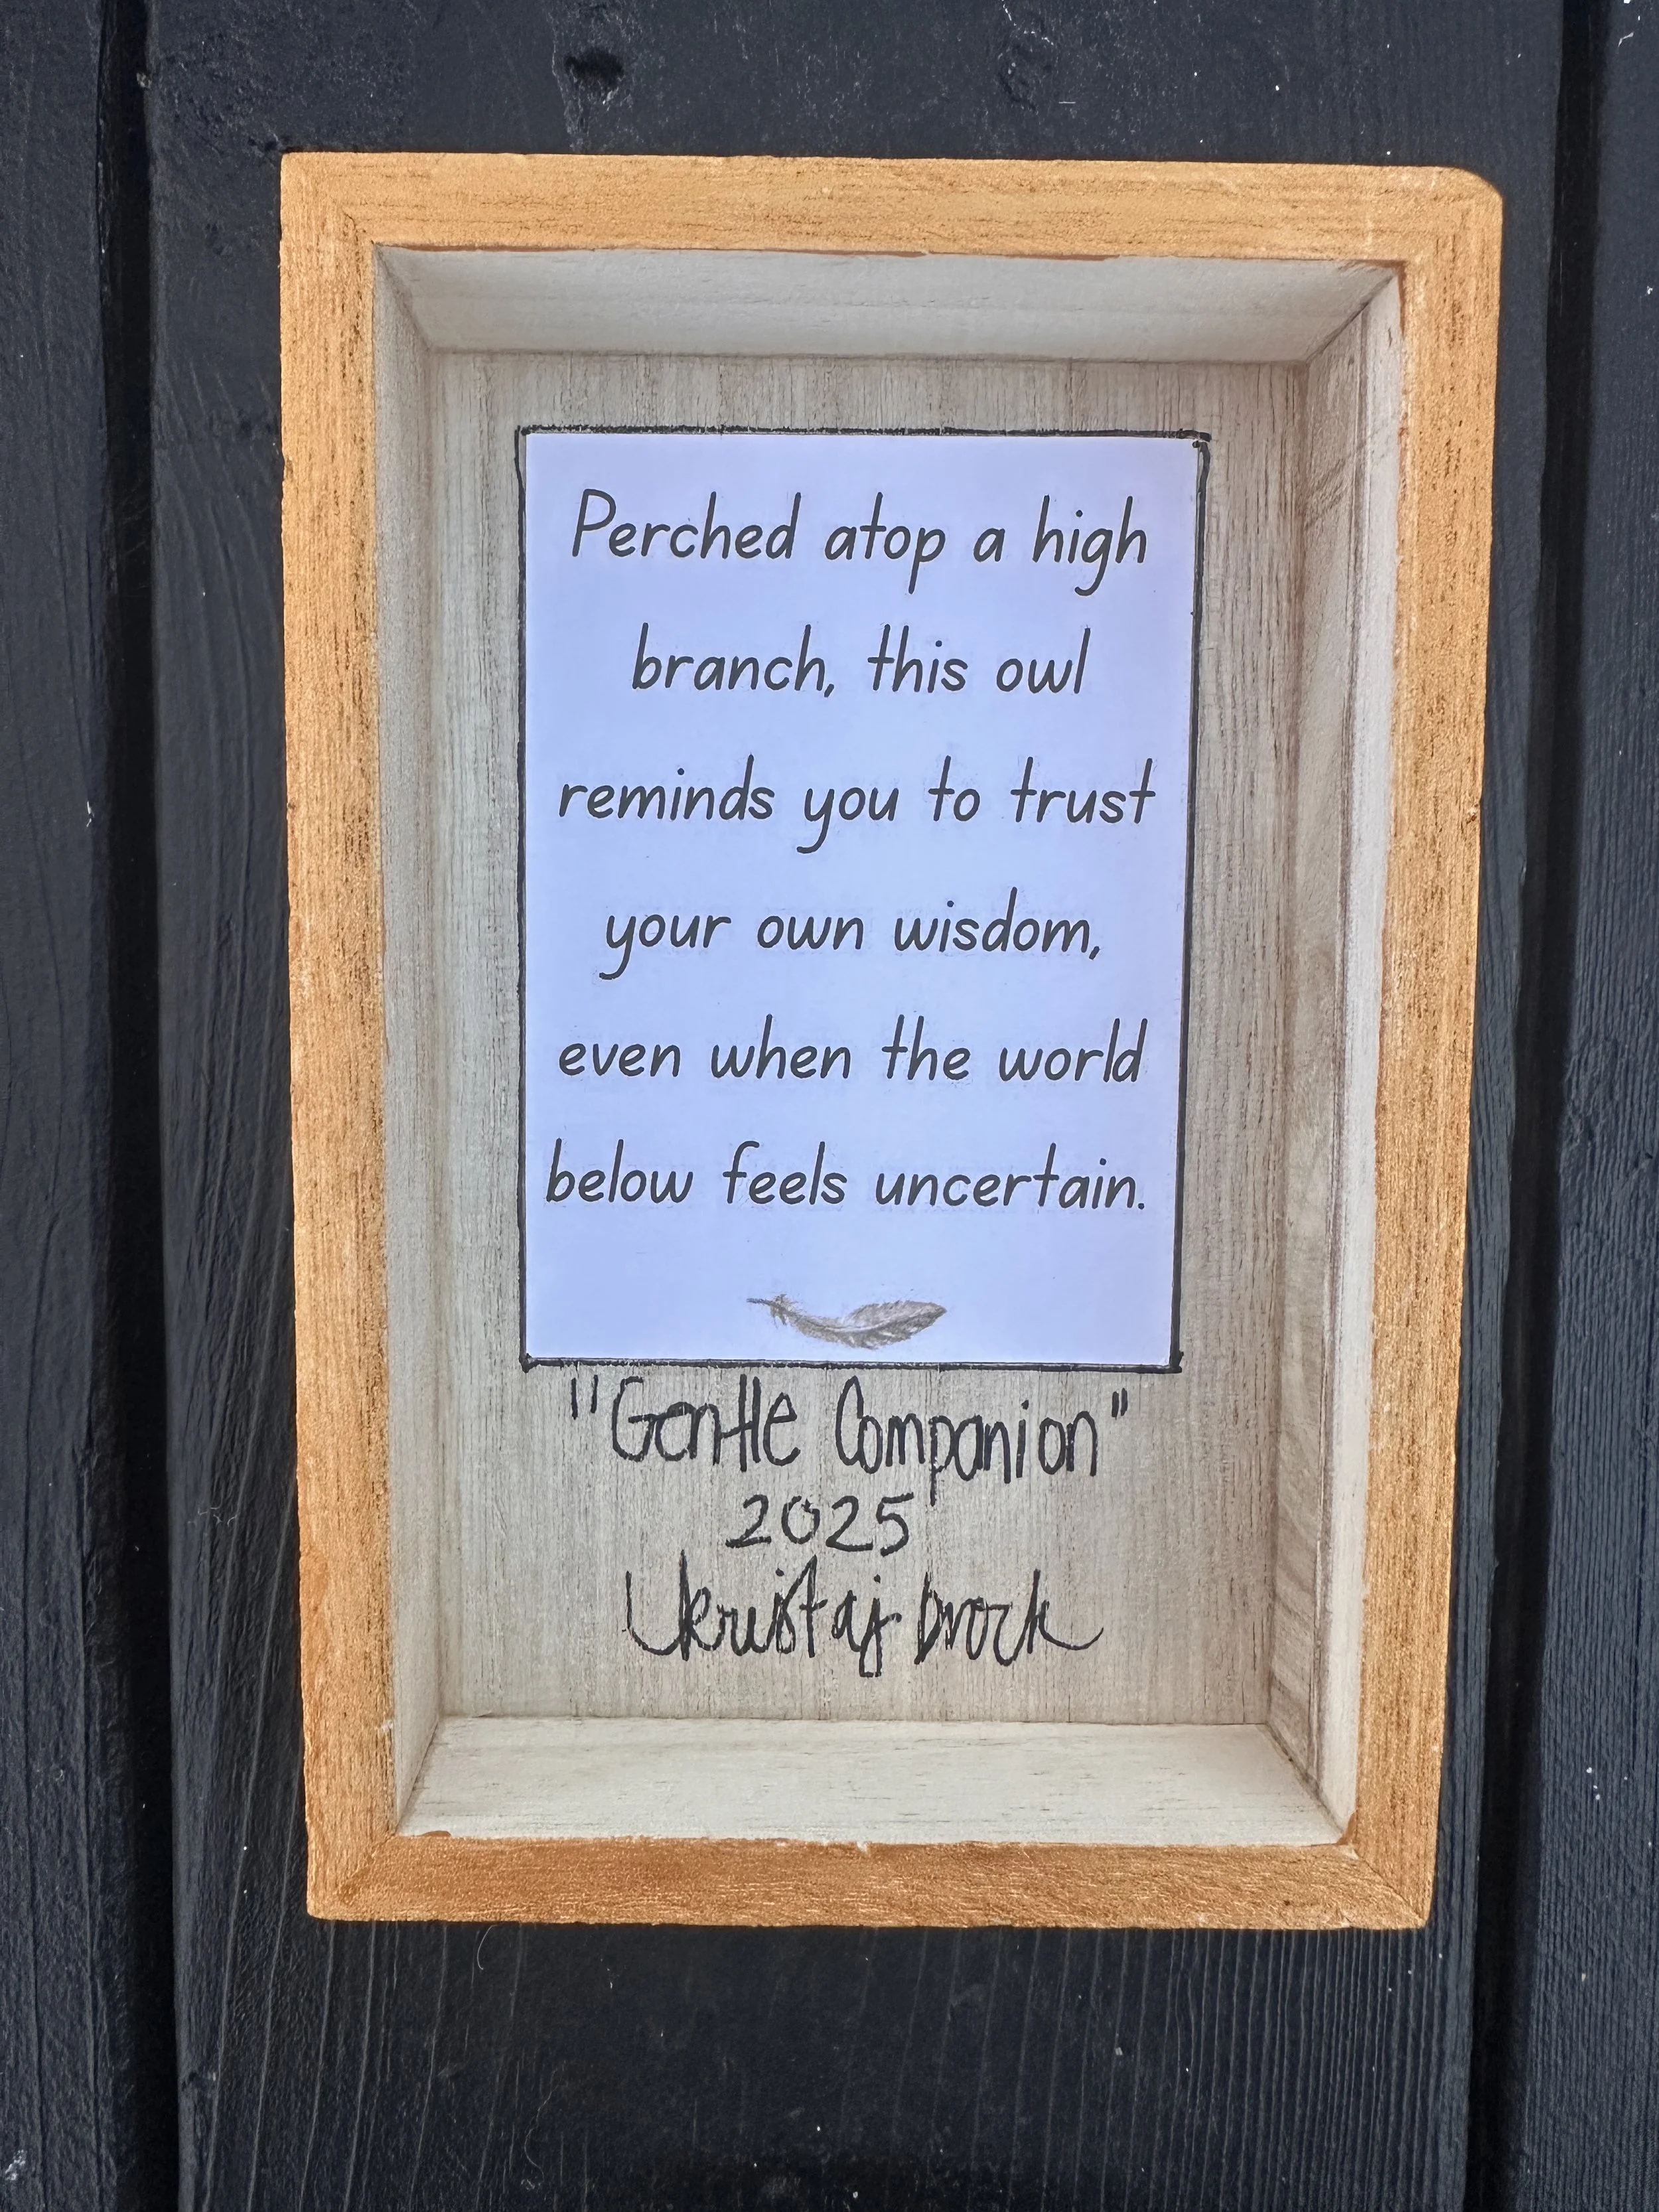 Perched atop a high
branch, this owl
reminds you to trust
your own wisdom,
even when the world
below feels uncertain.
"Gentle Companion"
2025